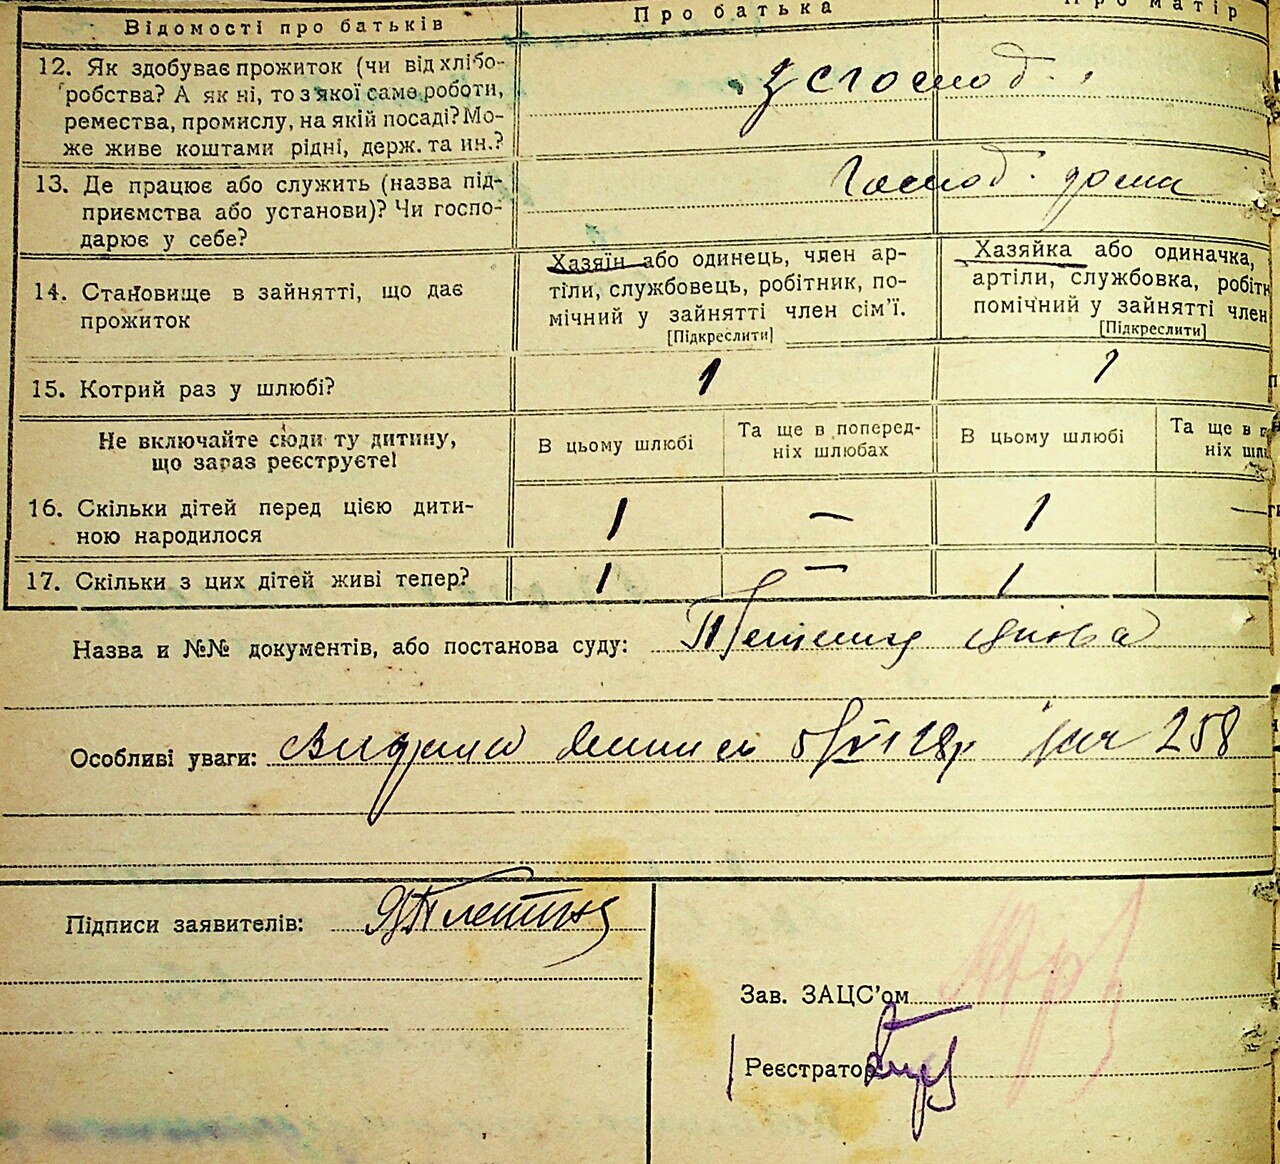 Відомості про батьків
Про батька
Про матір
12. Як здобуває прожиток (чи від хлібо-
робства? А як ні, то з якої саме роботи,
ремества, промислу, на якій посаді? Мо-
же живе коштами рідні, держ. та ин.?
з господ.
13. Де працює або служить (назва під-
приємства або установи)? Чи госпо-
дарює у себе?
Господ. дома
14. Становище в зайнятті, що дає
прожиток
Хазяїн або одинець, член ар-
тіли, службовець, робітник, по-
мічний у зайнятті член сім’ї.
[Підкреслити]
Хазяйка або одиначка,
артіли, службовка, робітн
помічний у зайнятті член
[Підкреслити]
15. Котрий раз у шлюбі?
1
1
Не включайте сюди ту дитину,
що зараз реєструєте!
В цьому шлюбі
Та ще в поперед-
ніх шлюбах
В цьому шлюбі
Та ще в п
ніх шлю
16. Скільки дітей перед цією дити-
ною народилося
1
—
1
—
17. Скільки з цих дітей живі тепер?
1
—
1
Назва и №№ документів, або постанова суду:
Особливі уваги: 258
Підписи заявителів:
Зав. ЗАЦС’ом
Реєстратор